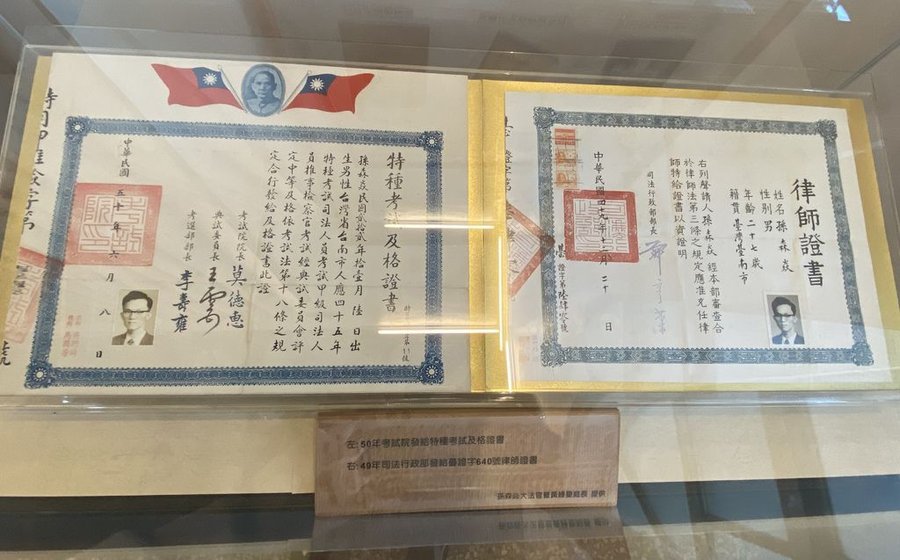 特種考試及格證書
孫森焱民國貳拾貳年拾壹月陸日出
生男性台灣省台南市人應四十五年
特種考試司法人員考試甲級司法人
員推事檢察官考試經典試委員會評
定中等及格依考試法第十八條之規
定合行發給及格證書此證
考試院院長 莫德惠
典試委員長 王雲
考選部部長 李壽雍
中華民國五十年六月八日
考試院印
律師證書
姓名孫森焱
性別男
年齡二十七歲
籍貫臺灣臺南市
右列聲請人孫森焱經本部審查合
於律師法第三條之規定應准充任律
師特給證書以資證明
司法行政部部長
中華民國四十九年十二月二十日
臺證字第陸肆零號
左: 50年考試院發給特種考試及格證書
右: 49年司法行政部發給臺證字640號律師證書
孫森焱大法官暨黃綠星庭長 提供